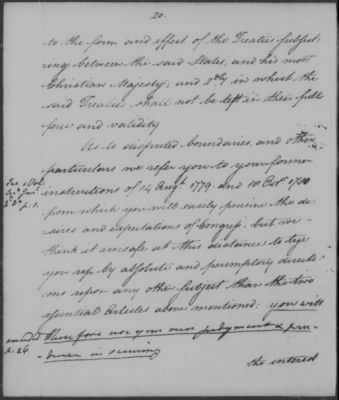 20.
to the form and effect of the Treaties subsist-
ing between the said States, and his most
Christian Majesty; and 2dly in which the
said Treaties shall not be left in their full
force and validity
As to disputed boundaries and other
particulars we refer you to your former
instructions of 14 Augt 1779 and 18 Octr 1780
from which you will easily perceive the de-
sires and expectations of Congress but we
think it unsafe at this distance to tye
you up by absolute and peremptory directi-
ons upon any other subject than the two
essential Articles above mentioned; you will
amended therefore use your own judgment & pru-
p. 26 dence in securing
the interest